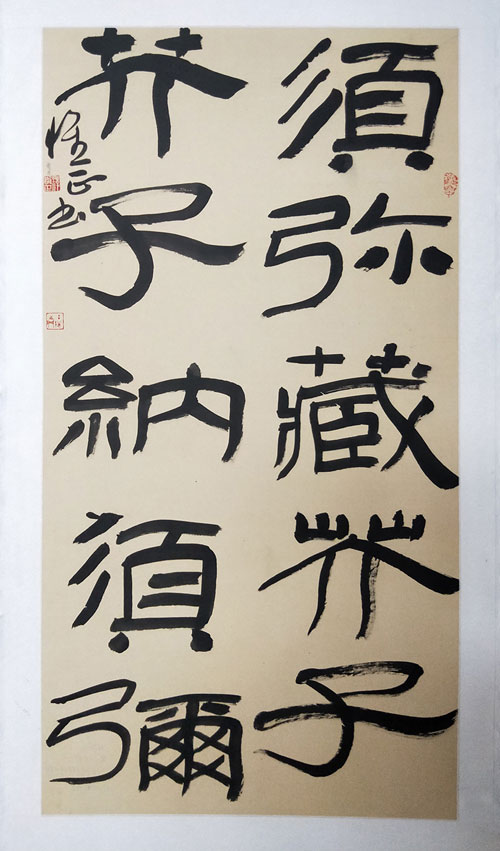 須弥藏芥子
芥子納須彌
正书